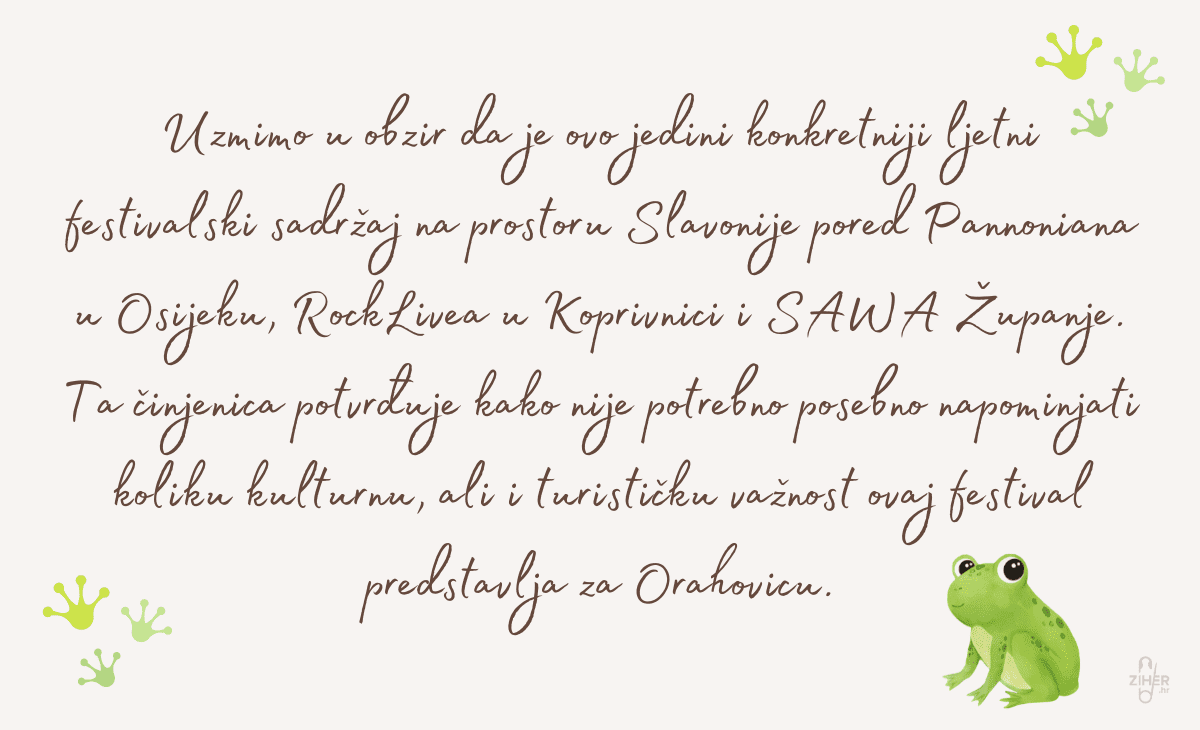 Uzmimo u obzir da je ovo jedini konkretniji ljetni
festivalski sadržaj na prostoru Slavonije pored Pannoniana
u Osijeku, RockLivea u Koprivnici i SAWA Županje.
Ta činjenica potvrđuje kako nije potrebno posebno napominjati
koliku kulturnu, ali i turističku važnost ovaj festival
predstavlja za Orahovicu.
ZIHER
.hr